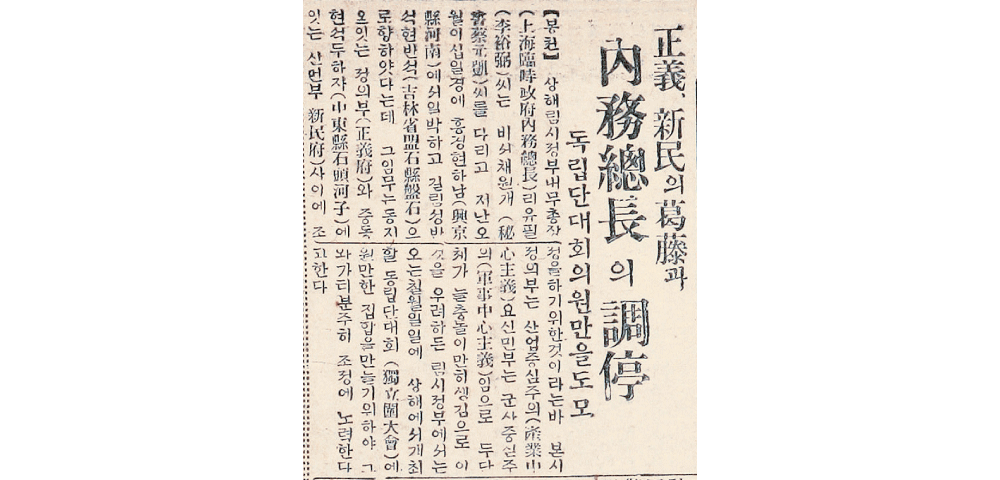 正義、新民의葛藤과
內務總長의調停
독립단대회의원만을도모
【봉천】 상해림시정부내무총장
(上海臨時政府內務總長)리유필
(李裕弼)씨는 비서채원개 (秘
書蔡元凱)씨를 다리고 저난오
월이십일경에 흥경현하남(興京
縣河南)에서일박하고 길림성반
석현반석(吉林省盟石縣盤石)으
로향하얏다는데 그임무는동지
오잇는 정의부(正義府)와 중동
현석두하자(中東縣石頭河子)에
잇는 산먼부 新民府)사이에 조
정을하기위한것이라는바 본시
정의부는 산업중심주의(産業中
心主義)요신민부는 군사중심주
의(軍事中心主義)임으로 두다
처가 늘충돌이만히생김으로 이
것을 우려하든 림시정부에서는
오는칠월일일에 상해에서개최
할 동립단대회 (獨立團大會)에
원만한 집합을만들기위하야 그
와가티분주히 조정에 노력한다
고한다